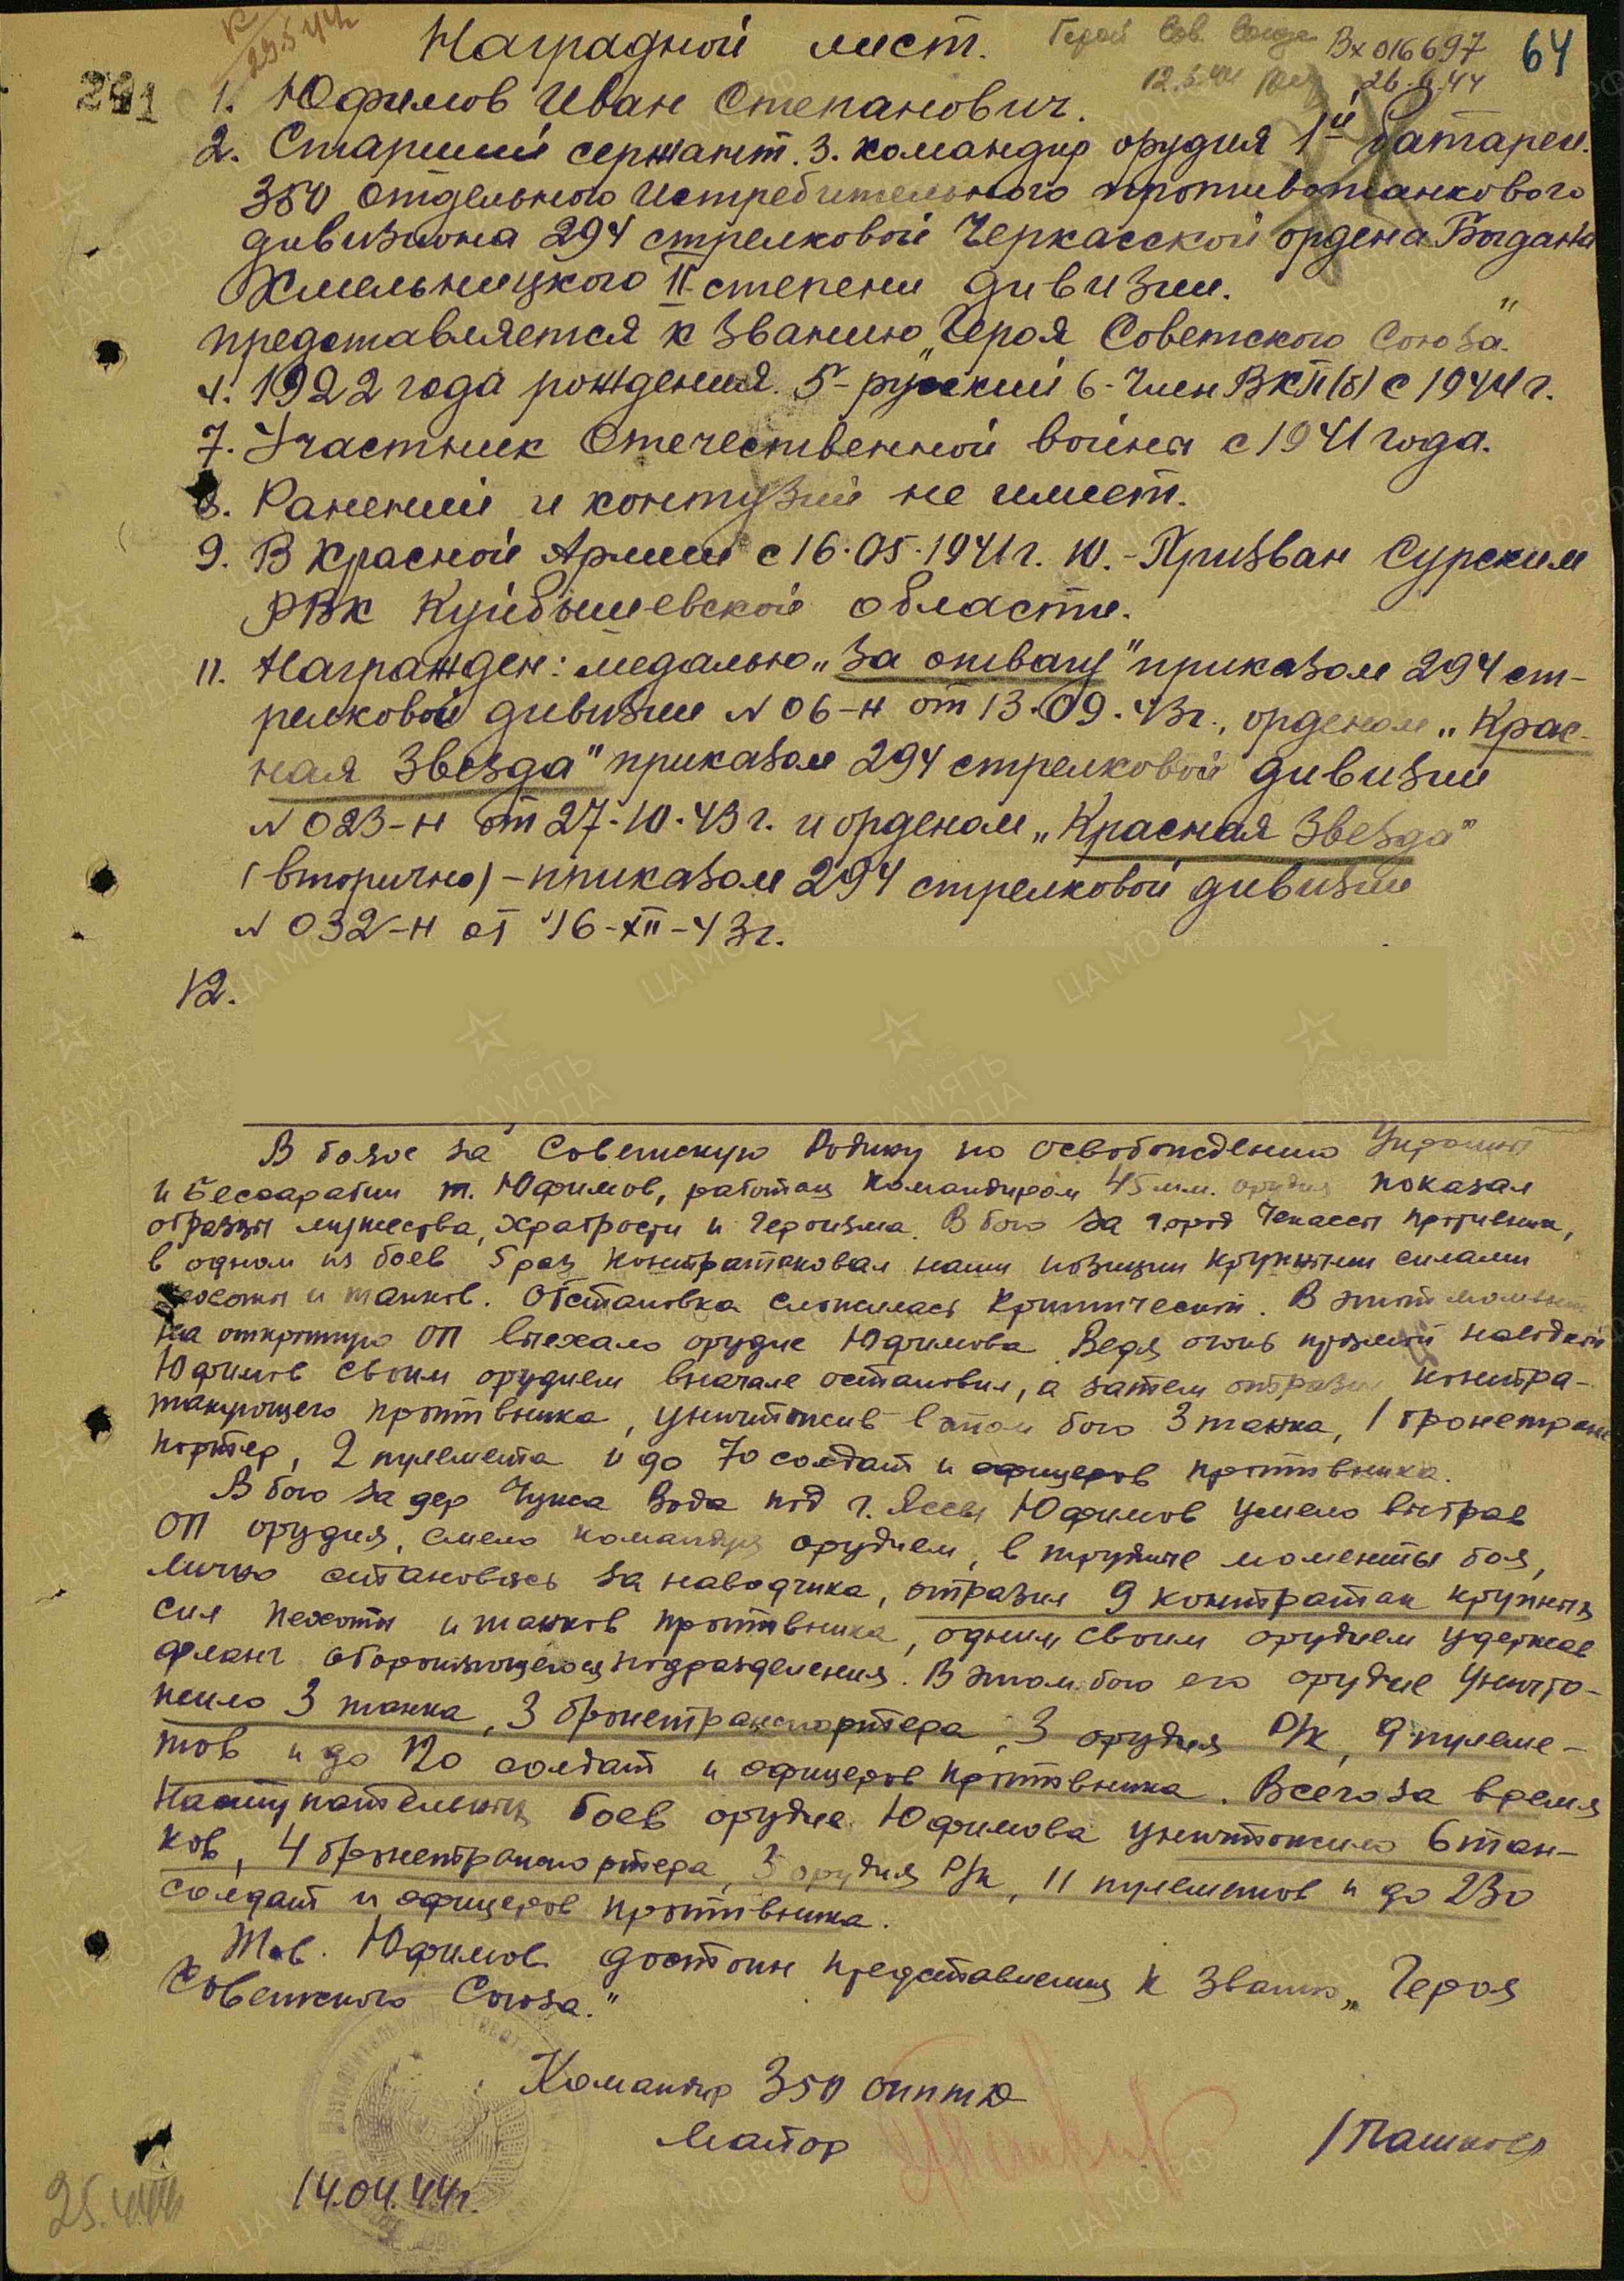 Герой Сов. Союза
Вх 016697
26.6.44
64
291
Наградной лист.
1. Юфимов Иван Степанович.
2. Старший сержант. 3. командир орудия 1й батареи.
350 отдельного истребительного противотанкового
дивизиона 294 стрелковой Черкасской ордена Богдана
Хмельницкого II степени дивизии.
представляется к званию „Героя Советского Союза".
4. 1922 года рождения. 5- русский 6- Член ВКП(б) с 1944 г.
7. Участник Отечественной войны с 1941 года.
8. Ранений и контузий не имеет.
9. В Красной Армии с 16.05.1941 г. 10.- Призван Сурским
РВК Куйбышевской области.
11. Награжден: медалью „За отвагу" приказом 294 ст-
релковой дивизии №06-н от 13.09.43г., орденом „Крас-
ная Звезда" приказом 294 стрелковой дивизии
№023-н от 27.10.43г. и орденом „Красная Звезда"
(вторично) - приказом 294 стрелковой дивизии
№032-н от 16-XII-43г.
12.
В боях за Советскую Родину по освобождению Украины
и Бессарабии т. Юфимов, работая командиром 45 мм. орудия показал
образцы мужества, храбрости и героизма. В бою за город Чекассы противник,
в одном из боев 5 раз контратаковал наши позиции крупными силами
пехоты и танков. Обстановка сложилась критической. В этот момент
на открытую ОП выехало орудие Юфимова. Ведя огонь прямой наводкой
Юфимов своим орудием вначале остановил, а затем отразил контра-
такующего противника, уничтожив в этом бою 3 танка, 1 бронетранс
портер, 2 пулемета и до 70 солдат и офицеров противника.
В бою за дер Чужа Вода под г. Яссы Юфимов умело выбрав
ОП орудия, смело командуя орудием, в трудные моменты боя,
лично становясь за наводчика, отразил 9 контратак крупных
сил пехоты и танков противника, одним своим орудием удержав
фланг обороняющегося подразделения. В этом бою его орудие уничто-
жило 3 танка, 3 бронетранспортера, 3 орудия Р/к, 9 пулеме-
тов и до 120 солдат и офицеров противника. Всего за время
наступательных боев орудие Юфимова уничтожило 6 тан-
ков, 4 бронетранспортера, 3 орудия Р/к, 11 пулеметов и до 230
солдат и офицеров противника.
Тов. Юфимов достоин представления к званию „Героя
Советского Союза."
Командир 350 оиптд
майор /Пашков/
14.04.44г.